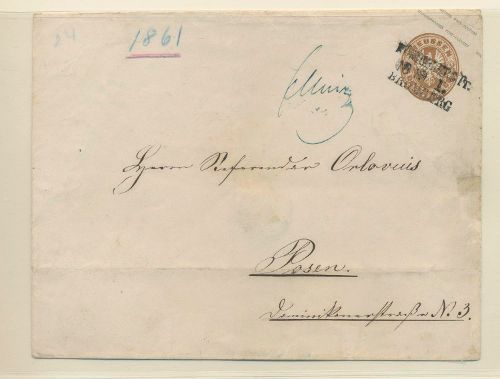 24
1861
PREUSSEN
BROMBERG
Herrn Referendar Orlovius
Posen.
Dominikanerstraße N. 3.